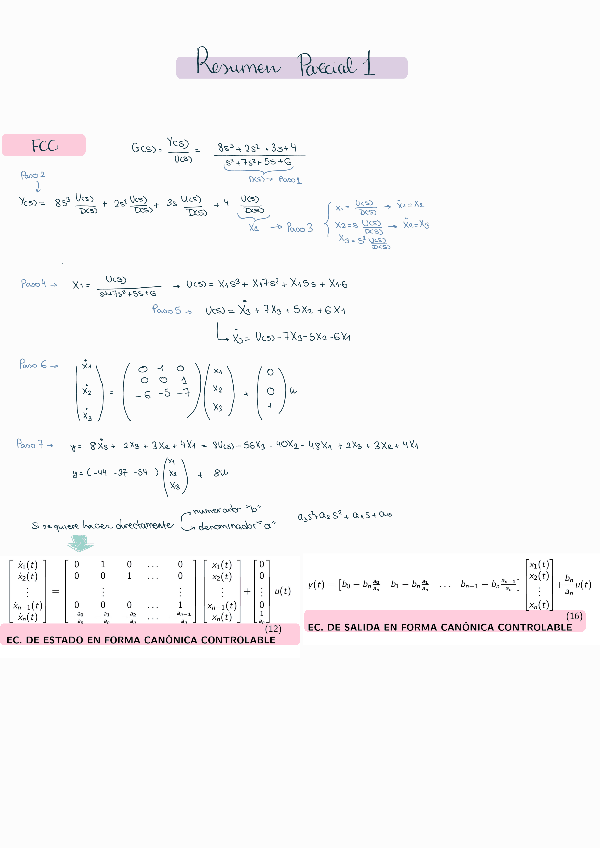 Resumen Parcial 1
FCC
G(s) = Y(s)/U(s) = (8s³ + 2s² + 3s + 4)/(s³ + 7s² + 5s + 6)
D(s) → Paso 1
Paso 2
Y(s) = 8s³ U(s)/D(s) + 2s² U(s)/D(s) + 3s U(s)/D(s) + 4 U(s)/D(s)
→ Paso 3
X1 = U(s)/D(s) → ẋ1 = X2
X2 = s U(s)/D(s) → ẋ2 = X3
X3 = s² U(s)/D(s)
Paso 4 → X1 = U(s)/(s³+7s²+5s+6) → U(s) = X1s³ + X17s² + X15s + X1·6
Paso 5 → U(s) = Ẋ3 + 7X3 + 5X2 + 6X1
Ẋ3 = U(s) - 7X3 - 5X2 - 6X1
Paso 6 →
ẋ1 0 1 0 x1 0
ẋ2 = 0 0 1 x2 + 0 u
ẋ3 -6 -5 -7 x3 1
Paso 7 → y = 8Ẋ3 + 2X3 + 3X2 + 4X1 = 8U(s) - 56X3 - 40X2 - 48X1 + 2X3 + 3X2 + 4X1
y = (-44 -37 -54) (x1 x2 x3) + 8u
Si se quiere hacer directamente
numerador "b"
denominador "a"
a3s³ + a2s² + a1s + a0
ẋ1(t) 0 1 0 … 0 x1(t) 0
ẋ2(t) 0 0 1 … 0 x2(t) 0
⋮ = ⋮ ⋮ ⋮ + ⋮ u(t)
ẋn−1(t) 0 0 0 … 1 xn−1(t) 0
ẋn(t) … xn(t)
(12)
EC. DE ESTADO EN FORMA CANÓNICA CONTROLABLE
y(t) [b0 − bn a0/an b1 − bn a1/an … bn−1 − bn an−1/an] [x1(t) x2(t) ⋮ xn(t)] + bn/an u(t)
(16)
EC. DE SALIDA EN FORMA CANÓNICA CONTROLABLE